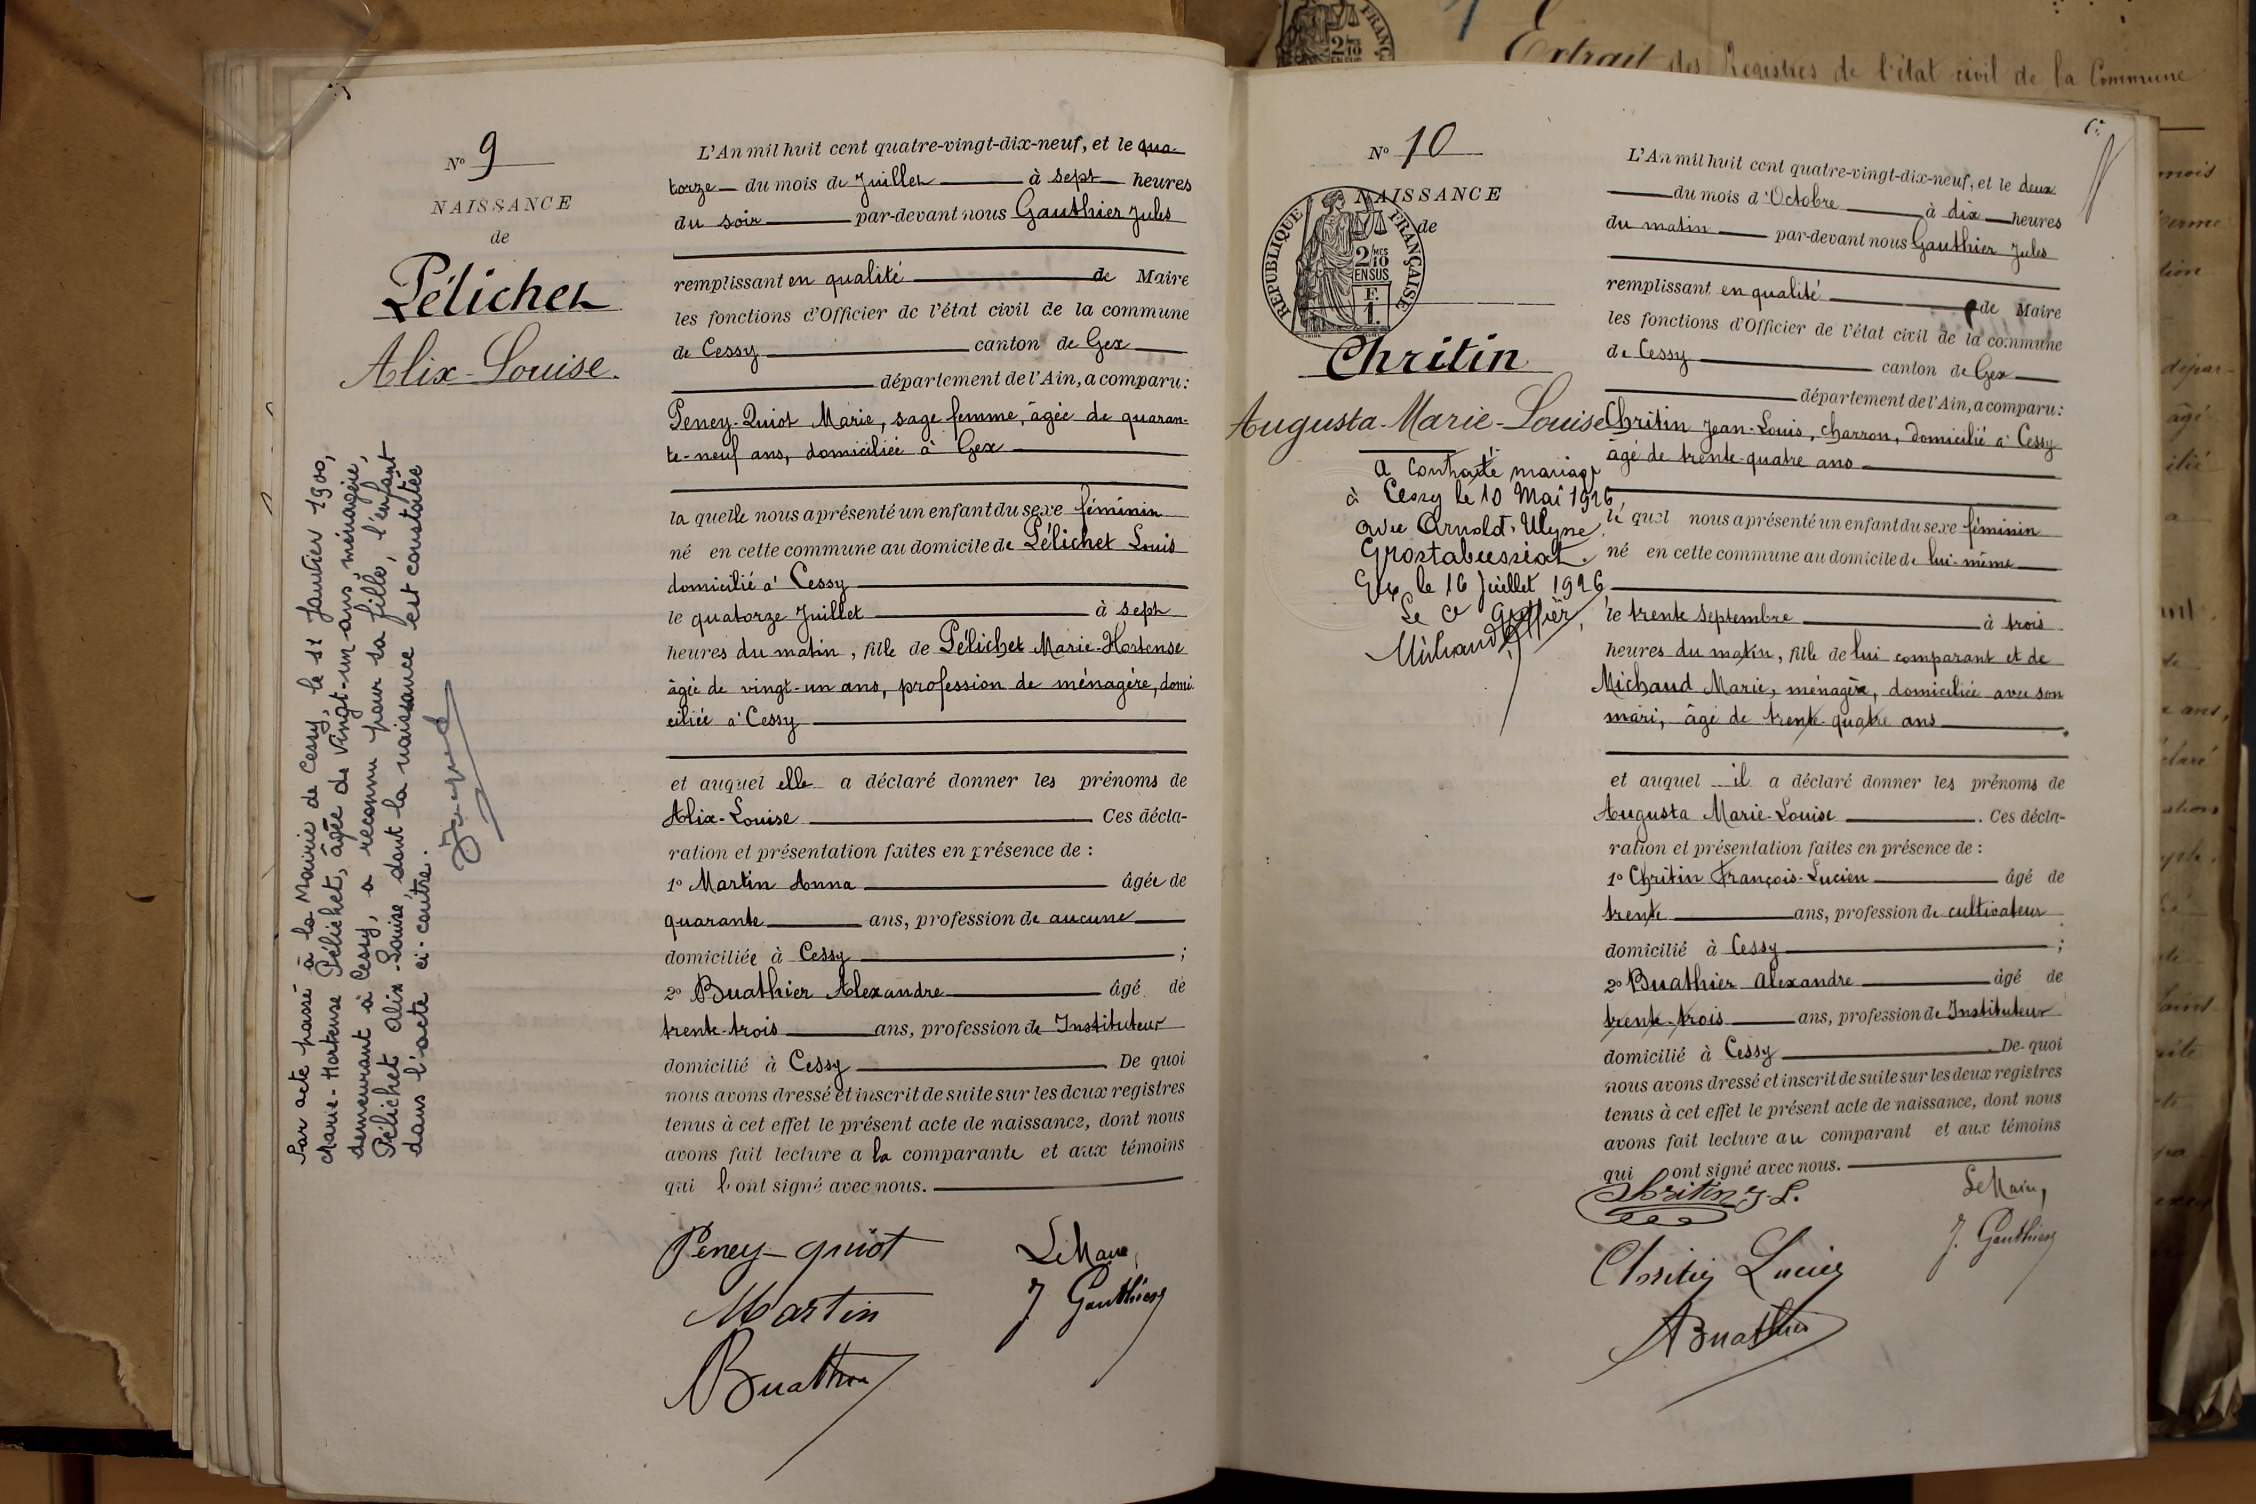 Extrait des Registres de l'état civil de la Commune
N° 9
NAISSANCE
de
Pélichet
Alix-Louise.
Par acte passé à la Mairie de Cessy, le 11 Janvier 1900,
Marie-Hortense Pélichet, âgée de vingt-un ans, ménagère,
demeurant à Cessy, a reconnu pour sa fille, l'enfant
Pélichet Alix-Louise, dont la naissance est constatée
dans l'acte ci-contre.
L'An mil huit cent quatre-vingt-dix-neuf, et le qua-
torze du mois de Juillet à sept heures
du soir par-devant nous Gauthier Jules
remplissant en qualité de Maire
les fonctions d'Officier de l'état civil de la commune
de Cessy canton de Gex
département de l'Ain, a comparu:
Peney-Quiot Marie, sage femme, âgée de quaran-
te-neuf ans, domiciliée à Gex
la quelle nous a présenté un enfant du sexe féminin
né en cette commune au domicile de Pélichet Louis
domicilié à Cessy
le quatorze Juillet à sept
heures du matin, fille de Pélichet Marie-Hortense
âgée de vingt-un ans, profession de ménagère, domi-
ciliée à Cessy
et auquel elle a déclaré donner les prénoms de
Alix-Louise Ces décla-
ration et présentation faites en présence de :
1° Martin Anna âgée de
quarante ans, profession de aucune
domiciliée à Cessy ;
2° Buathier Alexandre âgé de
trente-trois ans, profession de Instituteur
domicilié à Cessy De quoi
nous avons dressé et inscrit de suite sur les deux registres
tenus à cet effet le présent acte de naissance, dont nous
avons fait lecture a la comparante et aux témoins
qui l'ont signé avec nous.
Peney-Quiot Le Maire,
Martin J Gauthier
Buathier
N° 10
NAISSANCE
de
REPUBLIQUE FRANÇAISE
2/10 MES
EN SUS
F.
1.
Chritin
Augusta-Marie-Louise
a contracté mariage
à Cessy le 10 Mai 1926
avec Arnold-Ulysse
Grostabussiat.
Gex le 16 Juillet 1926
Le Greffier,
Michaud
L'An mil huit cent quatre-vingt-dix-neuf, et le deux
du mois d'Octobre à dix heures
du matin par-devant nous Gauthier Jules
remplissant en qualité de Maire
les fonctions d'Officier de l'état civil de la commune
de Cessy canton de Gex
département de l'Ain, a comparu:
Chritin Jean-Louis, charron, domicilié à Cessy
âgé de trente-quatre ans
le quel nous a présenté un enfant du sexe féminin
né en cette commune au domicile de lui-même
le trente septembre à trois
heures du matin, fille de lui comparant et de
Michaud Marie, ménagère, domiciliée avec son
mari, âgé de trente-quatre ans
et auquel il a déclaré donner les prénoms de
Augusta Marie-Louise. Ces décla-
ration et présentation faites en présence de :
1° Chritin François-Lucien âgé de
trente ans, profession de cultivateur
domicilié à Cessy ;
2° Buathier Alexandre âgé de
trente-trois ans, profession de Instituteur
domicilié à Cessy De quoi
nous avons dressé et inscrit de suite sur les deux registres
tenus à cet effet le présent acte de naissance, dont nous
avons fait lecture au comparant et aux témoins
qui ont signé avec nous.
Chritin J-L. Le Maire,
J. Gauthier
Chritin Lucien
A Buathier